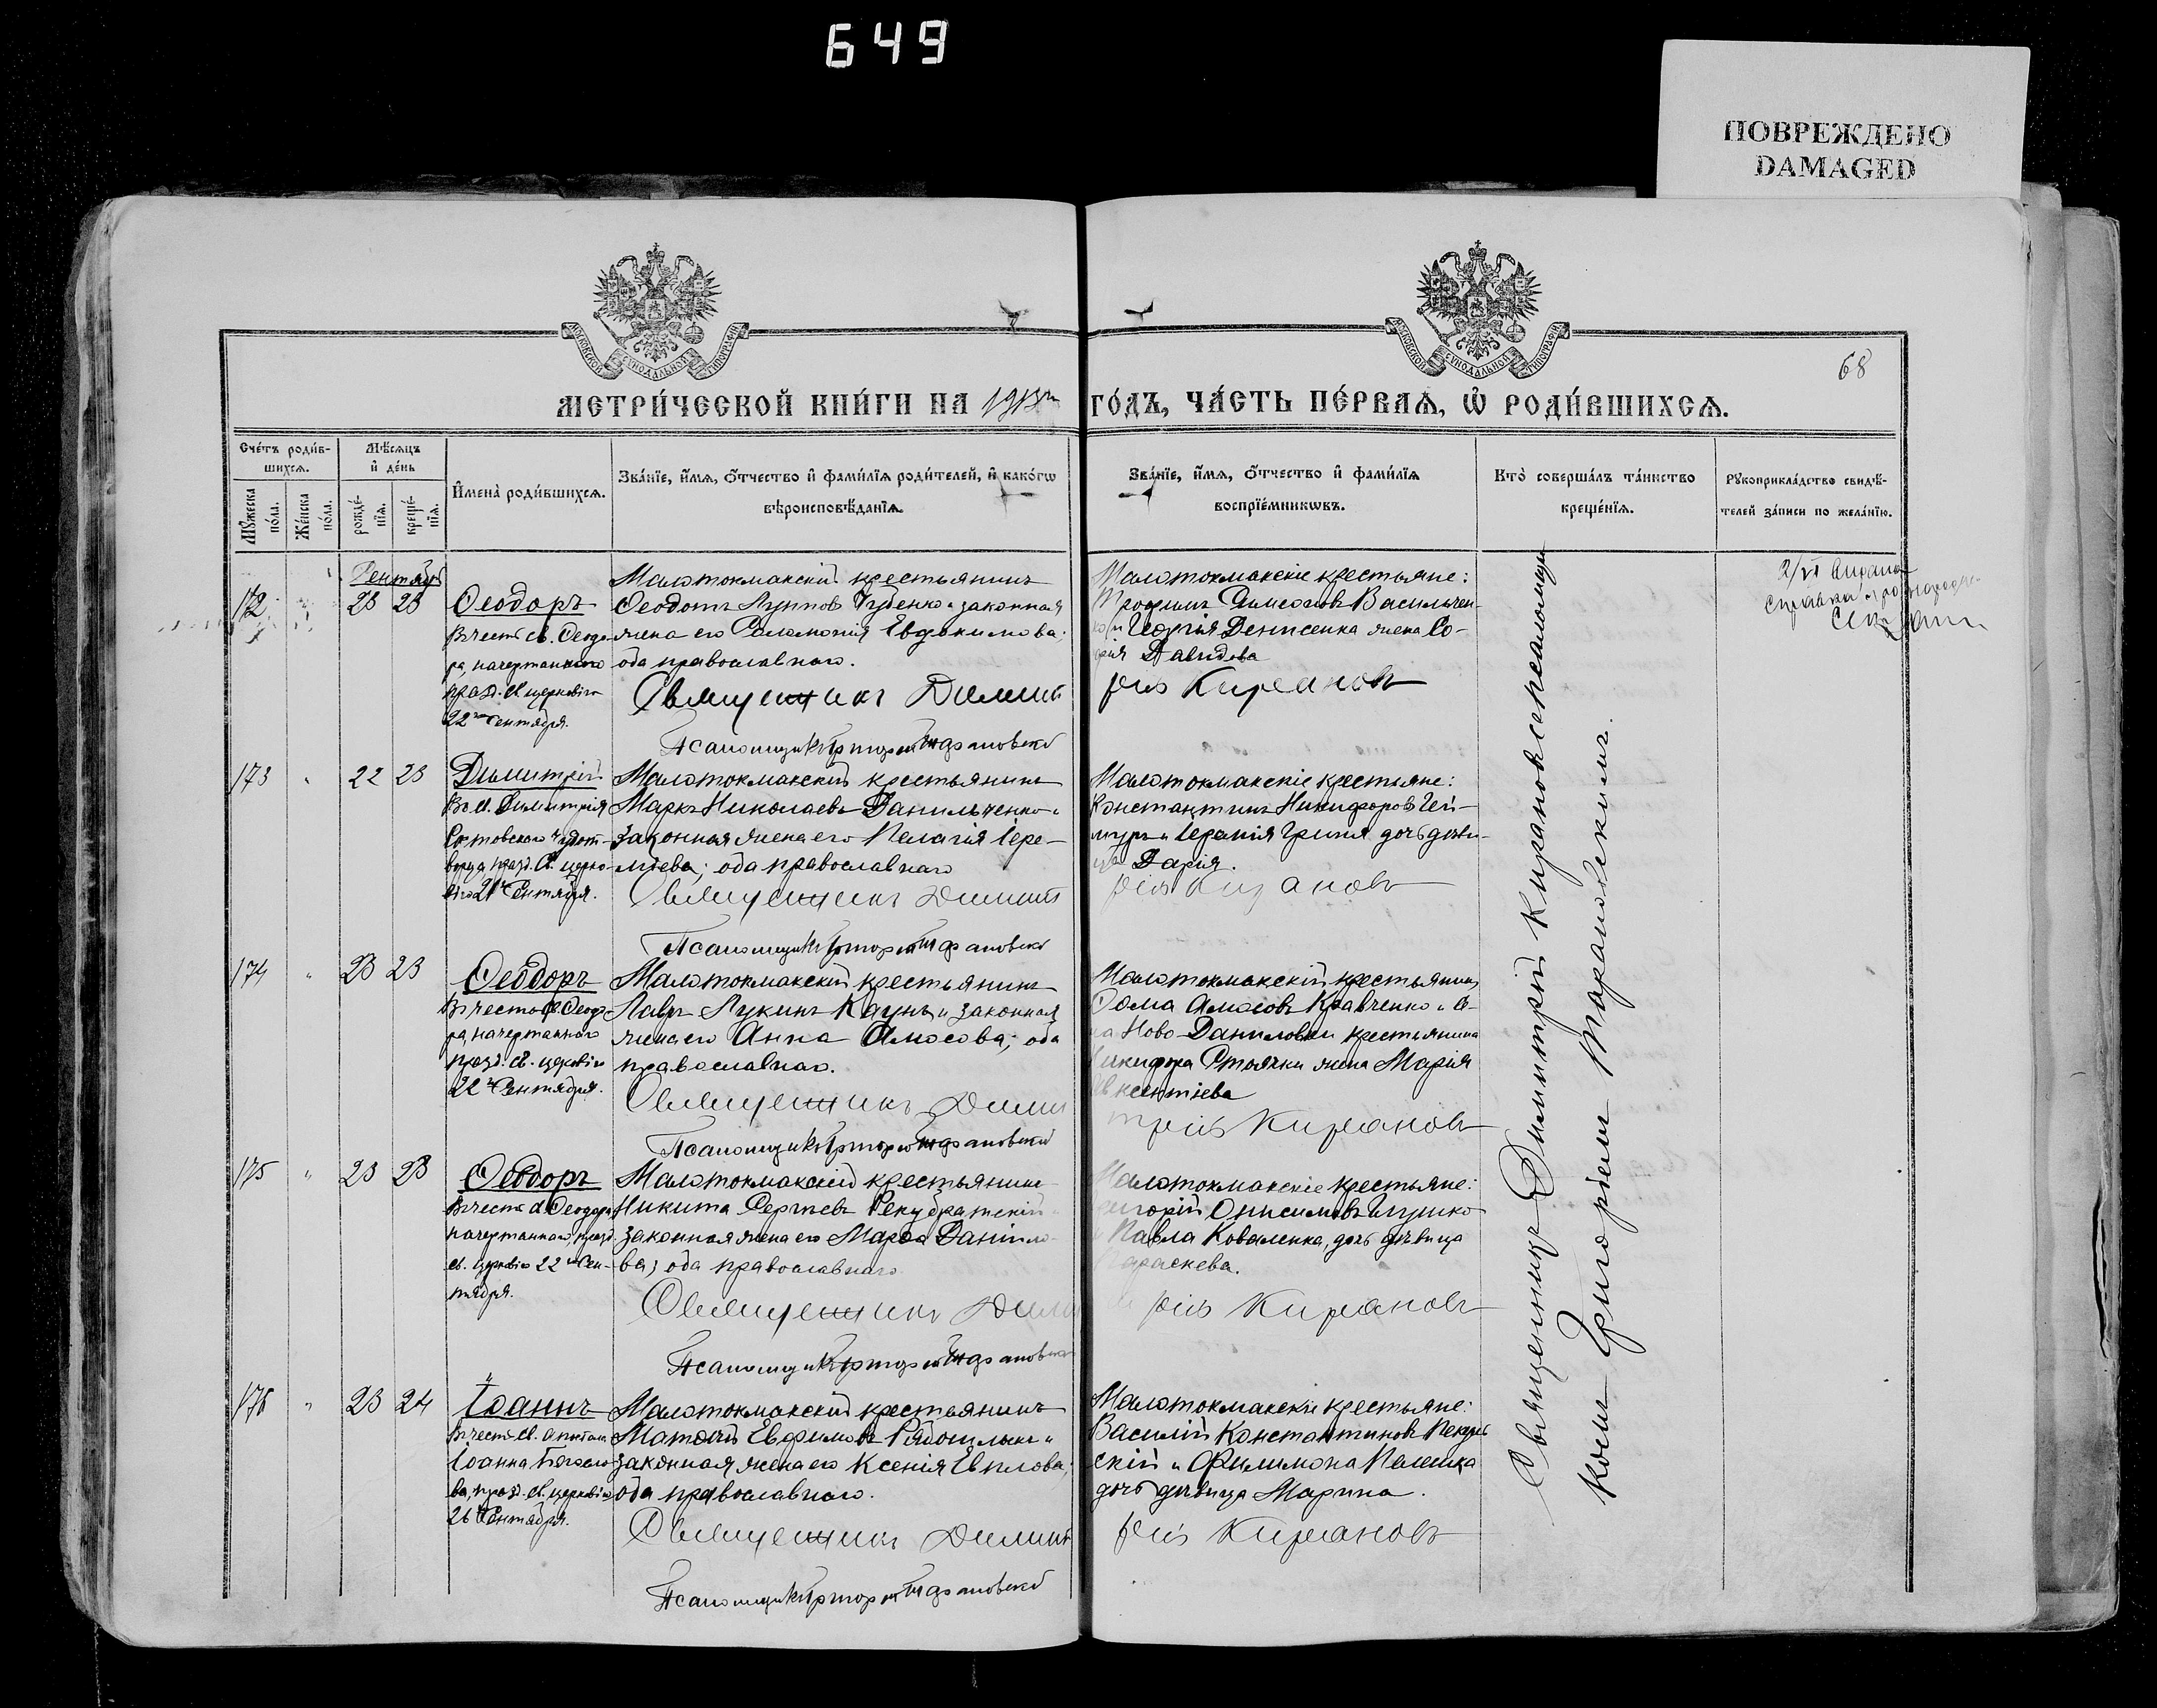 649
ПОВРЕЖДЕНО
DAMAGED
МОСКОВСКОЙ СѴНОДАЛЬНОЙ ТИПОГРАФІИ
МОСКОВСКОЙ СѴНОДАЛЬНОЙ ТИПОГРАФІИ
68
МЕТРИ́ЧЕСКОЙ КНИ́ГИ НА 1913й ГО́ДЪ, ЧА́СТЬ ПЕ́РВАѦ, Ѡ҆ РОДИ́ВШИХСѦ.
Сче́тъ роди́в-
шихсѧ.
Мꙋ́жеска
по́ла.
Же́нска
по́ла.
Мѣ́сѧцъ
и҆ де́нь
рожде́-
нїѧ.
креще́-
нїѧ.
И҆мена̀ роди́вшихсѧ.
Зва́нїе, и҆́мѧ, ѻ҆́тчество и҆ фами́лїѧ роди́телей, и҆ како́гѡ
вѣроисповѣ́данїѧ.
Зва́нїе, и҆́мѧ, ѻ҆́тчество и҆ фами́лїѧ
воспрїе́мникѡвъ.
Кто̀ соверша́лъ та́инство
креще́нїѧ.
Рꙋкоприкла́дство свидѣ́-
телей за́писи по жела́нїю.
Сентябрь
172
23 23
Ѳеодоръ
Въ честь св. Ѳеодо-
ра, начертаннаго
празд. св. церковію
22го Сентября.
Малотокмакскій крестьянинъ
Ѳеодотъ Губенко и законная
жена его Соломонія Евдокимова;
оба православнаго.
Священникъ Димит
Псаломщикъ Григорій Тарановскій
Малотокмакскіе крестьяне:
Трофимъ Симеоновъ Васильчен-
ко и Георгія Денисенка жена Со-
фія Давидова
рій Кирановъ
справка
173 " 22 23
Димитрій
Въ ч. св. Димитрія
Ростовскаго чудот-
ворца празд. св. церко-
вію 21го Сентября.
Малотокмакскій крестьянинъ
Маркъ Николаевъ Данильченко и
законная жена его Пелагія Іере-
міева; оба православнаго
Священникъ Димит
Псаломщикъ Григорій Тарановскій
Малотокмакскіе крестьяне:
Константинъ Никифоровъ
и дочь дѣви-
ца Дарія.
рій Кирановъ
174 " 23 23
Ѳеодоръ
Въ честь св. Ѳеодо-
ра, начертаннаго
празд. св. церковію
22го Сентября.
Малотокмакскій крестьянинъ
Лавръ Лукинъ Каунъ и законная
жена его Анна Амосова; оба
православнаго.
Священникъ Дими
Псаломщикъ Григорій Тарановскій
Малотокмакскій крестьянинъ
Ѳома Амосовъ Кравченко и с-
ла Ново-Даниловки крестьянина
Никифора жена Марія
Авксентіева
трій Кирановъ
175 " 23 23
Ѳеодоръ
Въ честь св. Ѳеодора
начертаннаго, празд.
св. церковію 22го Сен-
тября.
Малотокмакскій крестьянинъ
Никита Сергѣевъ и
законная жена его Марѳа Данило-
ва; оба православнаго
Священникъ Дими
Псаломщикъ Григорій Тарановскій
Малотокмакскіе крестьяне:
Григорій Онисимовъ
и Павла Коваленка, дочь дѣвица
Параскева.
трій Кирановъ
176 " 23 24
Іоаннъ
Въ честь св. Апостола
Іоанна Богосло-
ва, празд. св. церковію
26го Сентября.
Малотокмакскій крестьянинъ
Матѳій Евфимовъ и
законная жена его Ксенія Евплова;
оба православнаго.
Священникъ Димит
Псаломщикъ Григорій Тарановскій
Малотокмакскіе крестьяне:
Василій Константиновъ
и Филимона
дочь дѣвица Марина.
рій Кирановъ
Священникъ Димитрій Кирановъ съ псаломщи-
комъ Григоріемъ Тарановскимъ.